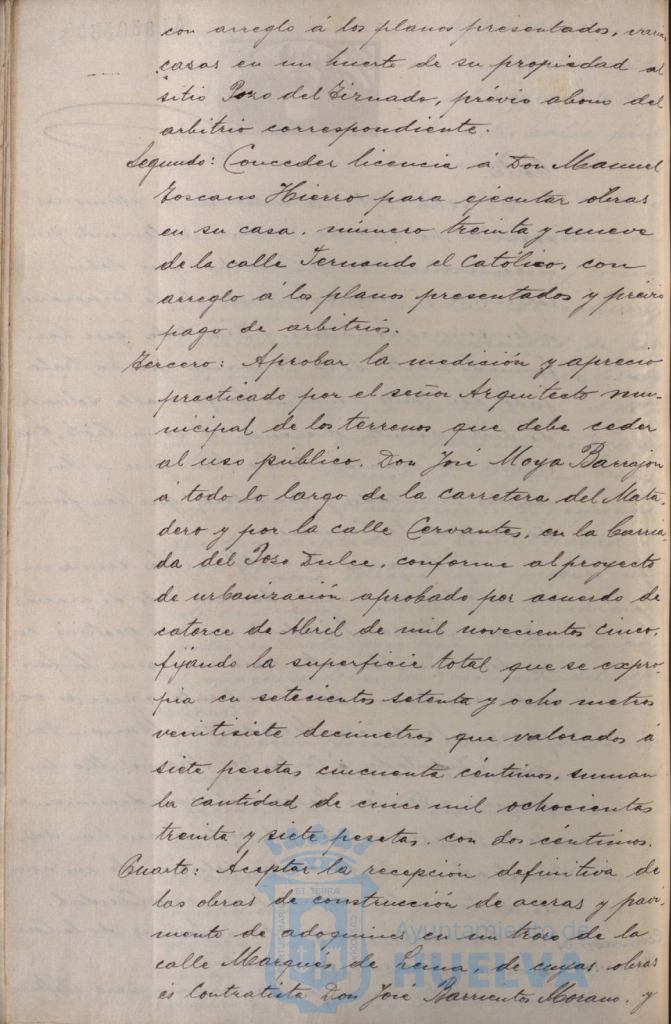 con arreglo á los planos presentados, varias
casas en un huerto de su propiedad al
sitio Pozo del Tirnado, prévio abono del
arbitrio correspondiente.
Segundo: Conceder licencia á Don Manuel
Toscano Hierro para ejecutar obras
en su casa, número treinta y nueve
de la calle Fernando el Católico, con
arreglo á los planos presentados y prévio
pago de arbitrios.
Tercero: Aprobar la medición y aprecio
practicado por el señor Arquitecto mu-
nicipal de los terrenos que debe ceder
al uso público, Don José Moya Barrajon
á todo lo largo de la carretera del Mata-
dero y por la calle Cervantes, en la barria-
da del Pozo Dulce, conforme al proyecto
de urbanización aprobado por acuerdo de
catorce de Abril de mil novecientos cinco,
fijando la superficie total que se expro-
pia en setecientos setenta y ocho metros
veintisiete decímetros que valorados á
siete pesetas cincuenta céntimos, suman
la cantidad de cinco mil ochocientas
treinta y siete pesetas, con dos céntimos.
Cuarto: Aceptar la recepción definitiva de
las obras de construcción de aceras y pavi-
mento de adoquines en un trozo de la
calle Marqués de Lema, de cuyas obras
es Contratista Don José Barrientos Morano, y
Ayuntamiento de
HUELVA